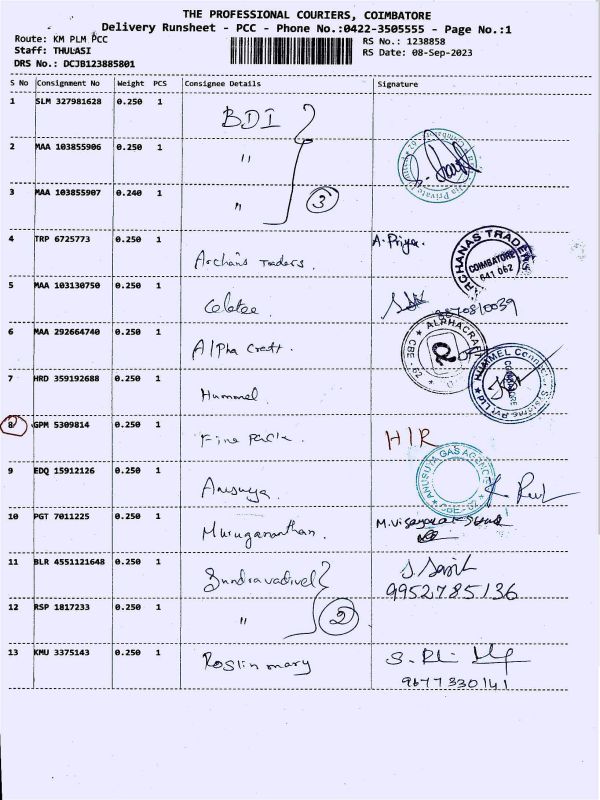 THE PROFESSIONAL COURIERS, COIMBATORE
Delivery Runsheet - PCC - Phone No.:0422-3505555 - Page No.:1
Route: KM PLM PCC
RS No.: 1238858
Staff: THULASI
RS Date: 08-Sep-2023
DRS No.: DCJB123885801
S No Consignment No Weight PCS Consignee Details Signature
1 SLM 327981628 0.250 1 BDI
2 MAA 103855906 0.250 1 "
3 MAA 103855907 0.240 1 " 3
4 TRP 6725773 0.250 1 Archans Traders. A. Priya.
ARCHANAS TRADERS COIMBATORE 641 062
5 MAA 103130750 0.250 1
6 MAA 292664740 0.250 1 Alpha Craft.
ALPHACRAFT CBE-62
7 HRD 359192688 0.250 1 Hummel
HUMMEL Connector Systems Pvt Ltd COIMBATORE
8 GPM 5309814 0.250 1 Fine Packe. HIR
9 EDQ 15912126 0.250 1 Anusuya.
ANUSUYA GAS AGENCIES CBE-62
10 PGT 7011225 0.250 1 Murugananthan.
11 BLR 4551121648 0.250 1 Sundravadivel
9952785136
12 RSP 1817233 0.250 1 " 2
13 KMU 3375143 0.250 1 Roslin mary
9677330141